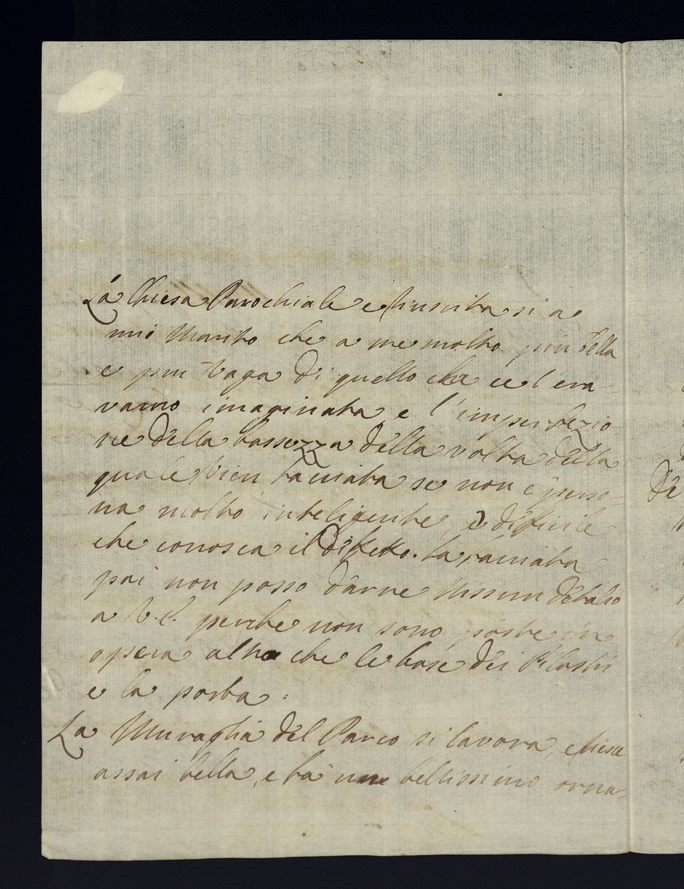 La Chiesa Parochiale e riuscita si a
mio Marito che a me molto piu bella
e piu vaga di quello che ce l'era
vamo imaginata e l'imperfezio
ne della bassezza della volta della
quale vien tacciata se non e perso
na molto inteligente, è dificile
che conosca il difetto. La faciata
poi non posso darne nissun detalio
a V. E. perche non sono poste in
opera altro che le base dei Pilastri
e la porta.
La Muraglia del Parco si lavora, e riesce
assai bella, e ha un bellissimo orna-
De